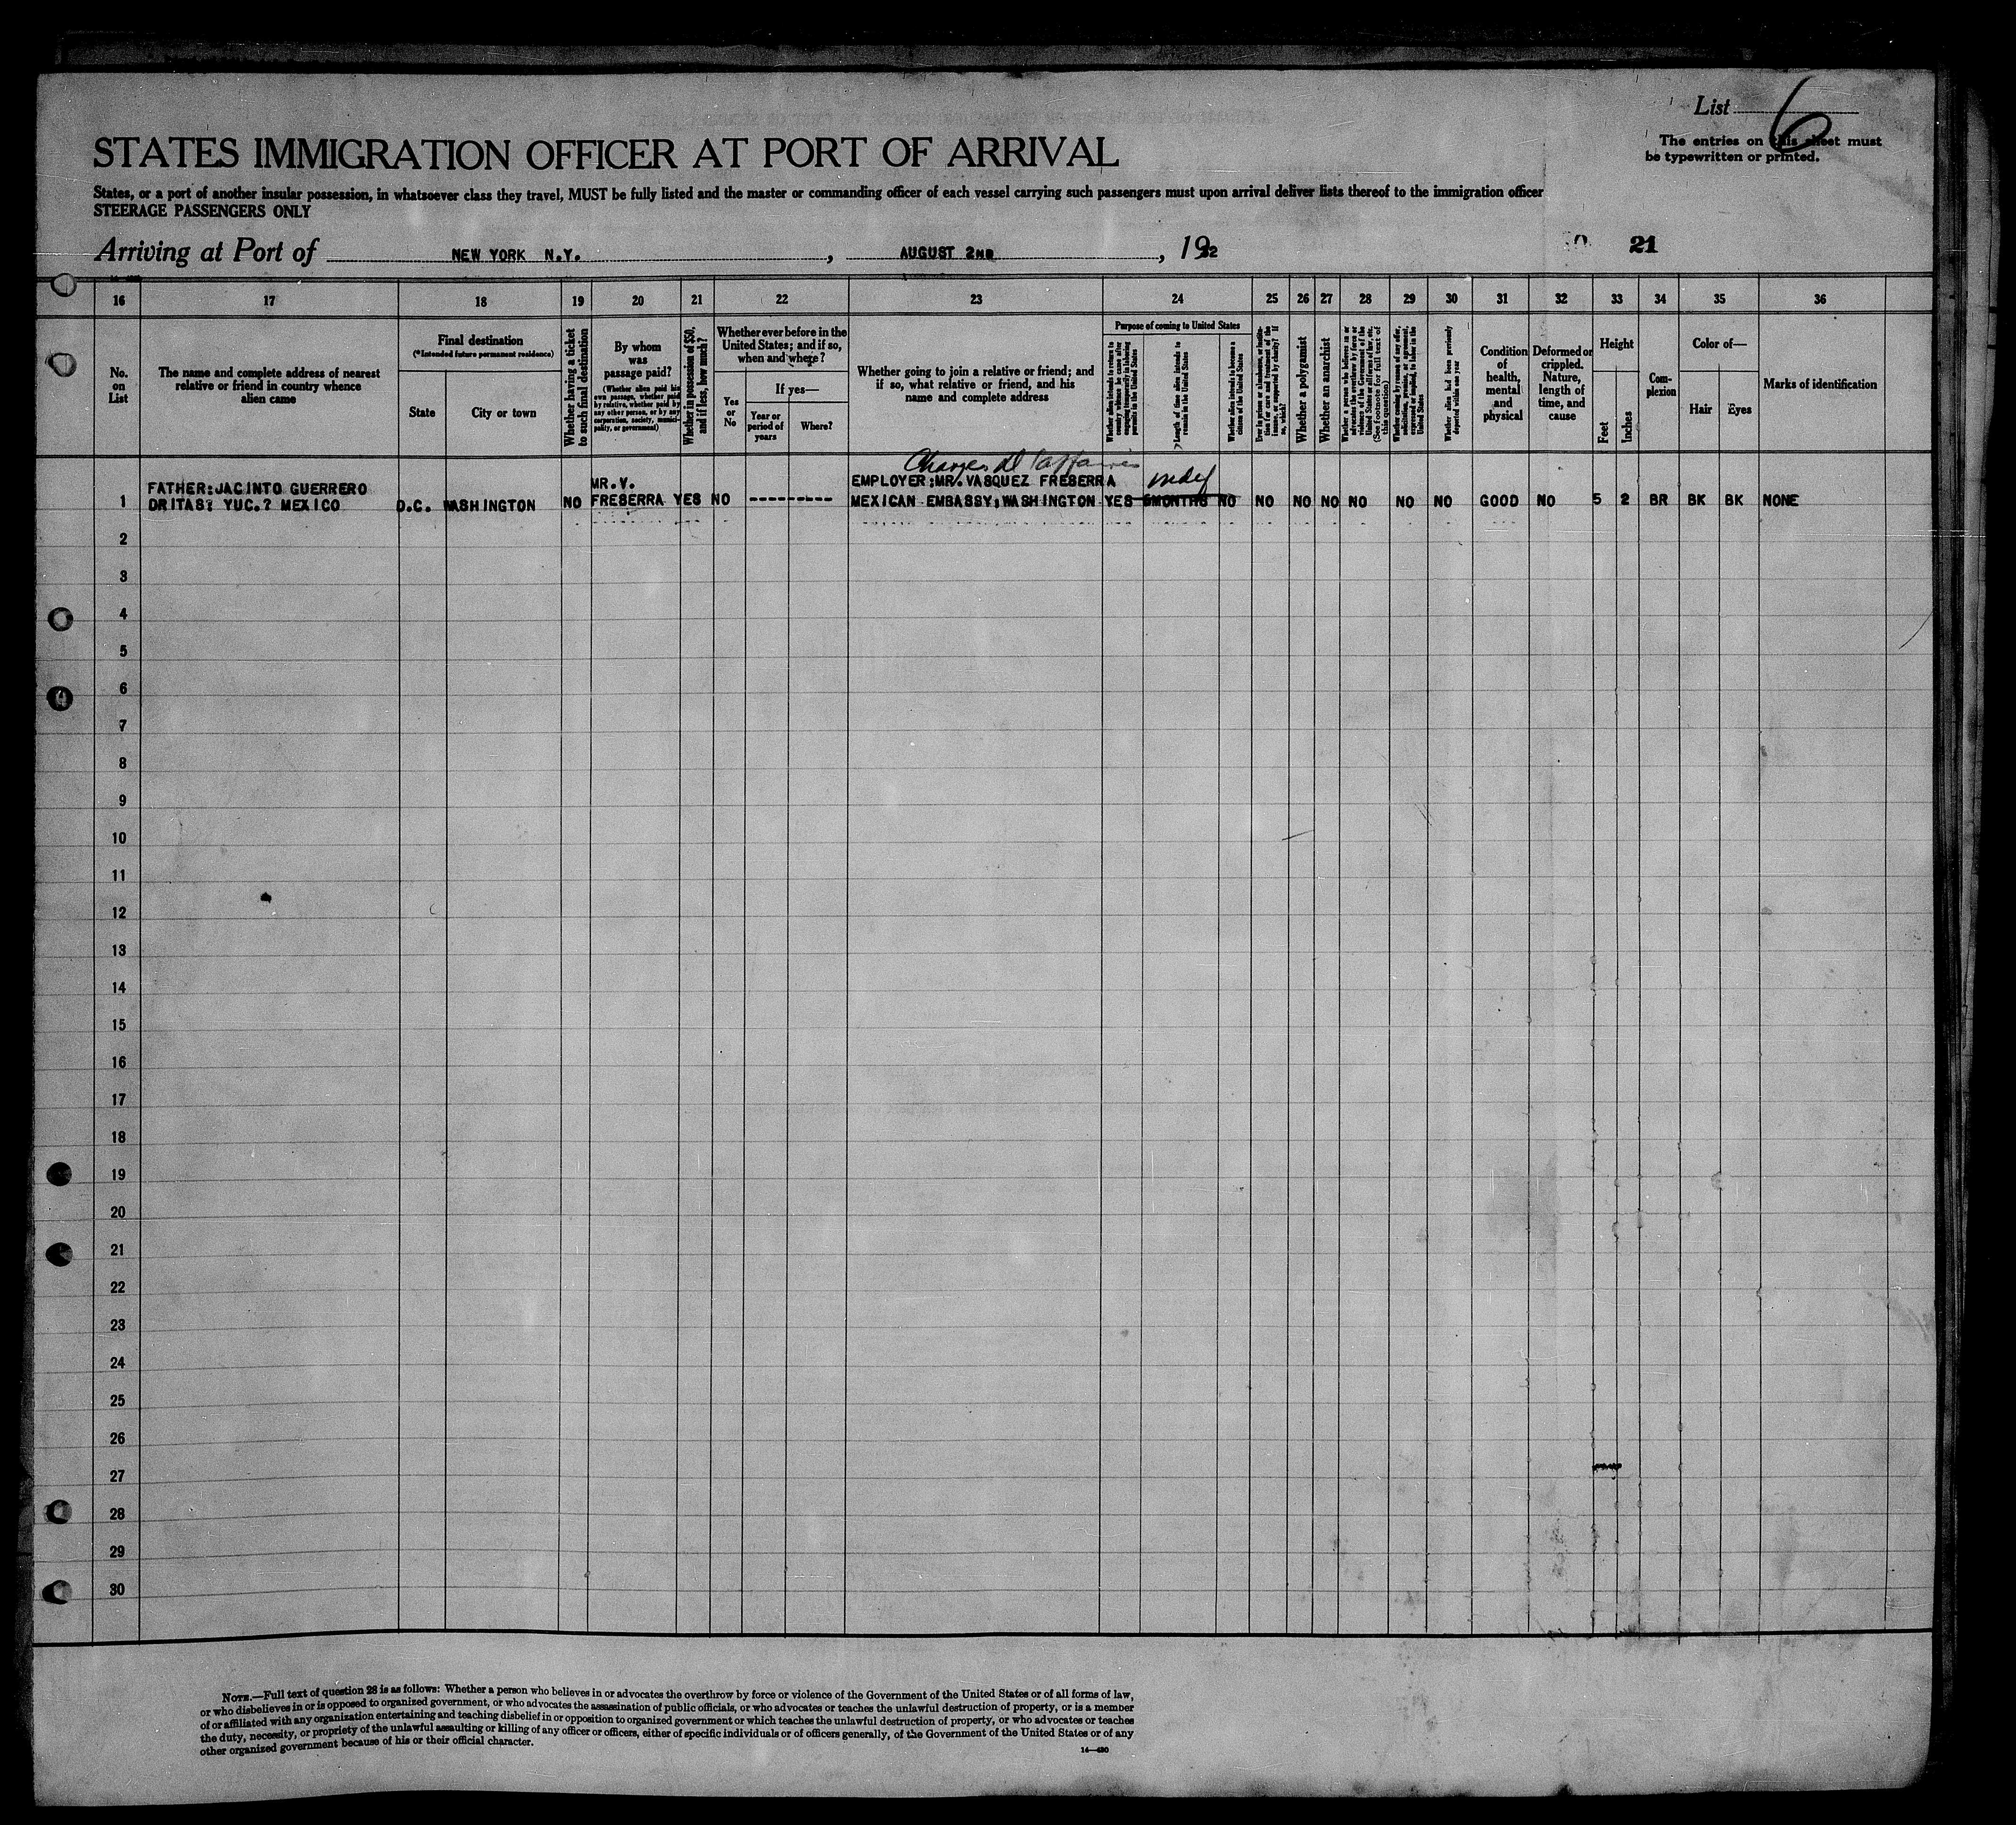 List 6
The entries on this sheet must
be typewritten or printed.
STATES IMMIGRATION OFFICER AT PORT OF ARRIVAL
States, or a port of another insular possession, in whatsoever class they travel, MUST be fully listed and the master or commanding officer of each vessel carrying such passengers must upon arrival deliver lists thereof to the immigration officer
STEERAGE PASSENGERS ONLY
Arriving at Port of NEW YORK N.Y. , AUGUST 2ND , 1932
21
16 17 18 19 20 21 22 23 24 25 26 27 28 29 30 31 32 33 34 35 36
No.
on
List
The name and complete address of nearest
relative or friend in country whence
alien came
Final destination
(*Intended future permanent residence)
State
City or town
Whether having a ticket
to such final destination
By whom
was
passage paid?
(Whether alien paid his
own passage, whether paid
by relative, whether paid by
any other person, or by any
corporation, society, munici-
pality, or government)
Whether in possession of $50,
and if less, how much?
Whether ever before in the
United States; and if so,
when and where?
Yes
or
No
If yes—
Year or
period of
years
Where?
Whether going to join a relative or friend; and
if so, what relative or friend, and his
name and complete address
Purpose of coming to United States
Whether alien intends to return to
country whence he came after
engaging temporarily in laboring
pursuits in the United States
Length of time alien intends to
remain in the United States
Whether alien intends to become a
citizen of the United States
Ever in prison or almshouse, or institu-
tion for care and treatment of the
insane, or supported by charity? If
so, which?
Whether a polygamist
Whether an anarchist
Whether a person who believes in or
advocates the overthrow by force or
violence of the Government of the
United States or all forms of law, etc.
(See footnote for full text of
this question)
Whether coming by reason of any offer,
solicitation, promise, or agreement,
expressed or implied, to labor in the
United States
Whether alien had been previously
deported within one year
Condition
of
health,
mental
and
physical
Deformed or
crippled.
Nature,
length of
time, and
cause
Height
Feet
Inches
Com-
plexion
Color of—
Hair
Eyes
Marks of identification
Charges d l'affaires
FATHER:JACINTO GUERRERO MR.V. EMPLOYER:MR.VASQUEZ FRESERRA indef
1 DRITAS? YUC.? MEXICO D.C. WASHINGTON NO FRESERRA YES NO --------- MEXICAN EMBASSY;WASHINGTON YES 6MONTHS NO NO NO NO NO NO NO GOOD NO 5 2 BR BK BK NONE
2
3
4
5
6
7
8
9
10
11
12
13
14
15
16
17
18
19
20
21
22
23
24
25
26
27
28
29
30
NOTE.—Full text of question 28 is as follows: Whether a person who believes in or advocates the overthrow by force or violence of the Government of the United States or of all forms of law,
or who disbelieves in or is opposed to organized government, or who advocates the assassination of public officials, or who advocates or teaches the unlawful destruction of property, or is a member
of or affiliated with any organization entertaining and teaching disbelief in or opposition to organized government or which teaches the unlawful destruction of property, or who advocates or teaches
the duty, necessity, or propriety of the unlawful assaulting or killing of any officer or officers, either of specific individuals or of officers generally, of the Government of the United States or of any
other organized government because of his or their official character.
14—430